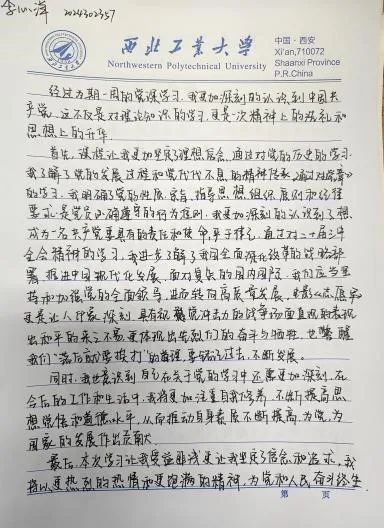 李心萍 2024302357
西北工业大学
Northwestern Polytechnical University
中国·西安
Xi'an,710072
Shaanxi Province
P.R.China
经过为期一周的党课学习,我更加深刻的认识到中国共
产党,这不仅是对理论知识的学习,更是一次精神上的洗礼和
思想上的升华
首先,课程让我更加坚定了理想信念,通过对党的历史的学习,
我了解了党的发展过程和党代代不息的精神传承,通过对党章
的学习,我明确了党的性质、宗旨、指导思想、组织原则和纪律
要求,是党员必须遵守的行为准则,我更加深刻的认识到了想
成为一名共产党要具有的责任和使命
全会精神的学习,我进一步了解了我国全面深化改革的战略部
署,推进中国现代化发展,面对复杂的国内国际,我们应当坚
持和加强党的全面领导,进而转向高质量发展,
更是让人印象深刻,具有视觉冲击力的战争场面直观的表现
出和平的来之不易,更体现出先烈们的奋斗与牺牲,也警醒
我们“落后就要挨打”的道理,要铭记过去,不断发展。
同时,我也意识到自己在关于党的学习中还需更加深刻,在
今后的工作和生活中,我将更加注重自我修养,不断提高思
想觉悟和道德水平,从而推动自身素质不断提高,为党、为
国家的发展作出贡献
最后,本次学习让我受益匪浅,更让我坚定了信念和追求,我
将以更热烈的热情和更饱满的精神,为党和人民奋斗终生
第 页